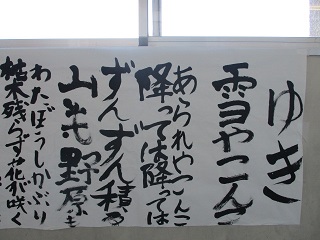 ゆき
雪やこんこ
あられやこんこ
降っては降っては
ずんずん積る
山も野原も
わたぼうしかぶり
枯木残らず花が咲く